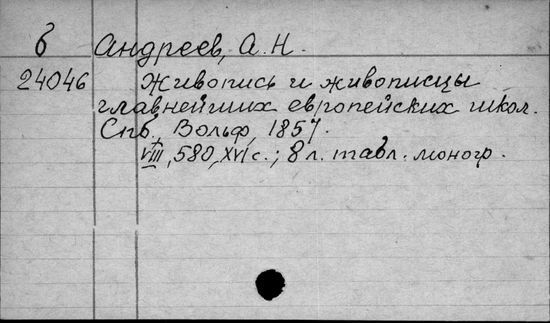 б Андреев, А.Н.
24046 Живопись и живописцы
главнейших европейских школ.
Спб, Вольф, 1857.
VIII, 580, XVI с.; 8 л. табл. моногр.